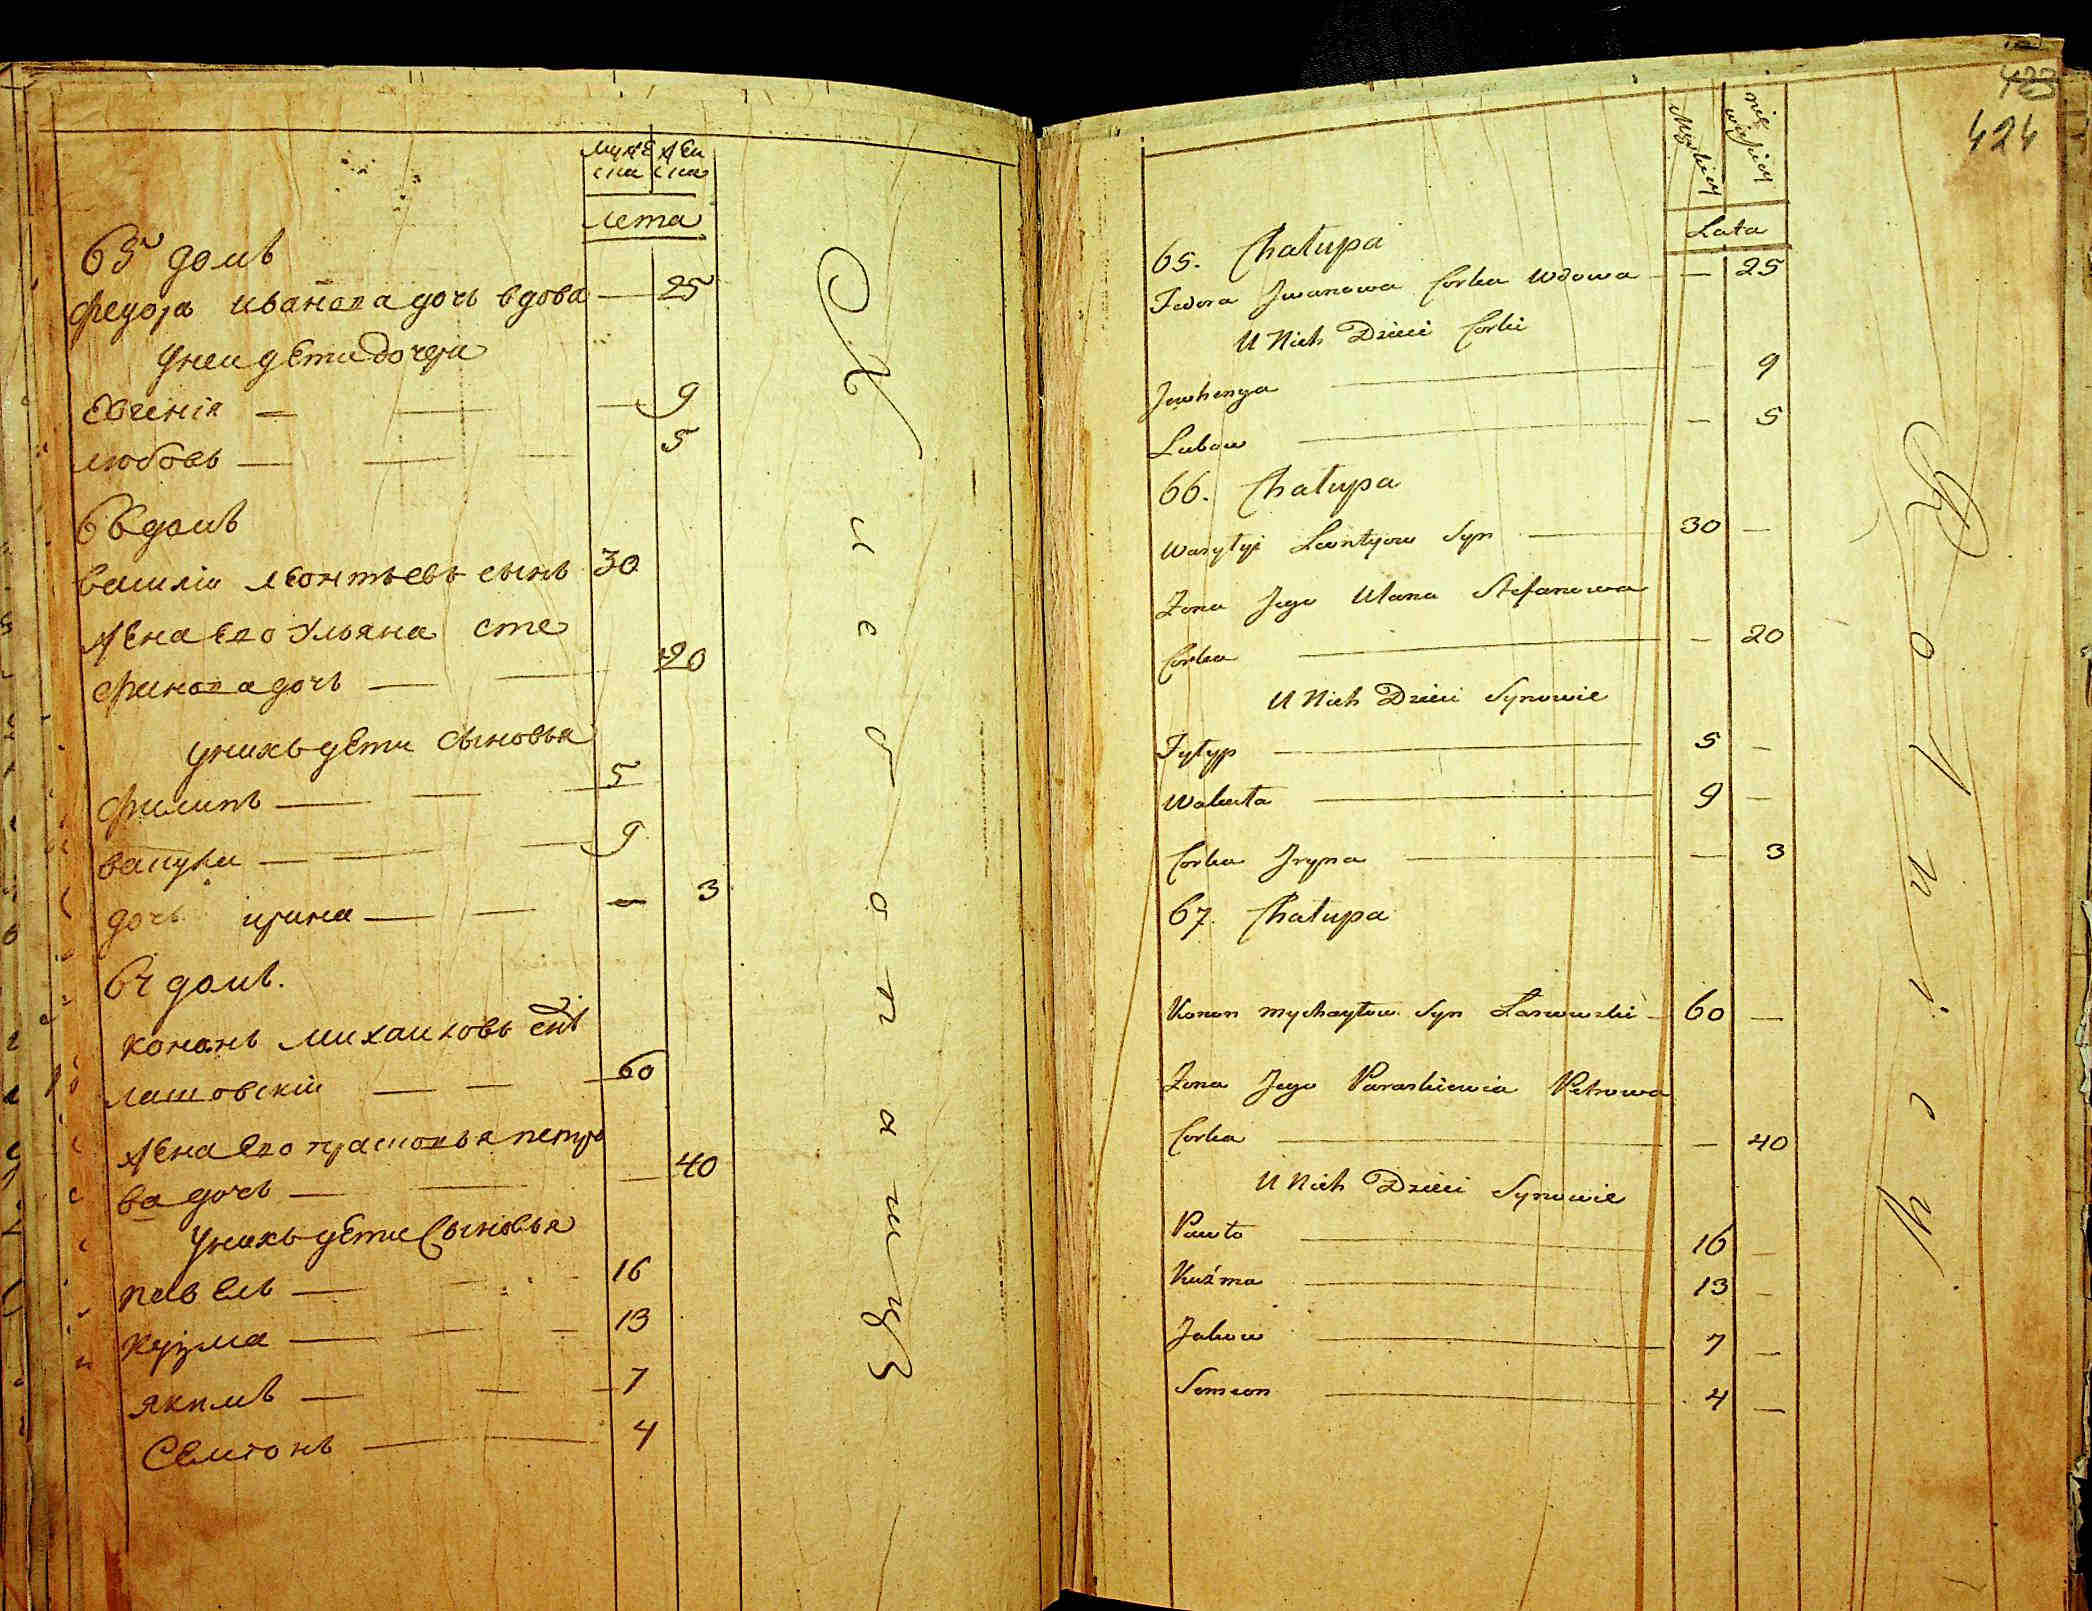 муже жен
ска ска
лета
65 домъ
Федора иванова дочь вдова — 25
унеи дети дочери
Евгенія — 9
любовь — 5
66 домъ
василіи леонтьевъ сынъ 30
жена его Ульяна сте
фанова дочь — 20
унихъ дети сыновья
филипъ — 5
вакула — 9
дочь ирина — 3
67 домъ.
конанъ михаиловъ снъ
лашовскіи — 60
жена его прасковья петро
ва дочь — 40
унихъ дети Сыновья
павелъ — 16
кузма — 13
якимъ — 7
Семионъ — 4
423
424
Lata
65. Chałupa
Fedora Jwanowa Corka Wdowa — 25
U Nich Dzieci Corki
Jewhenya — 9
Lubow — 5
66. Chałupa
Wasylyi Leontyow Syn — 30 —
Zona Jego Ulana Stefanowa
Corka — 20
U Nich Dzieci Synowie
Fylyp — 5 —
Wakuła — 9 —
Corka Jryna — 3
67. Chałupa
Konon Mychayłow Syn Laszowski — 60 —
Zona Jego Paraskiewia Petrowa
Corka — 40
U Nich Dzieci Synowie
Pawło — 16 —
Kuźma — 13 —
Jakow — 7 —
Semeon — 4 —